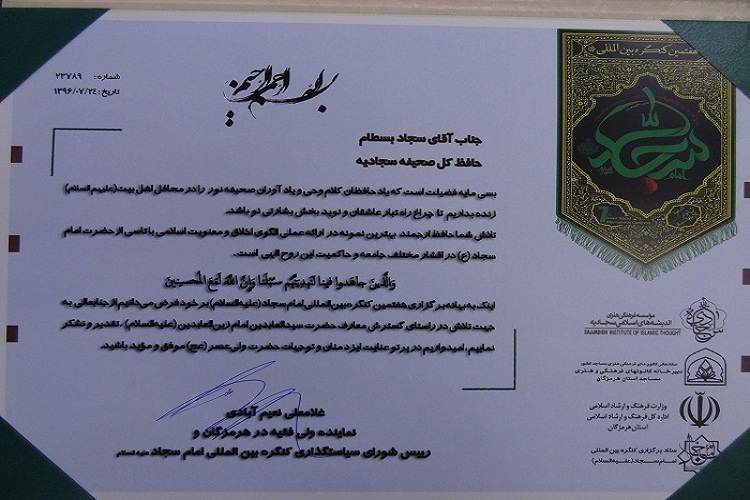 هفتمین کنگره بین المللی
امام سجاد
شماره: ۲۳۷۸۹
تاریخ: ۱۳۹۶/۰۷/۲۴
بسم الله الرحمن الرحیم
جناب آقای سجاد بسطام
حافظ کل صحیفه سجادیه
بسی مایه فضیلت است که یاد حافظان کلام وحی و یاد آوران صحیفه نور را در محافل اهل بیت(علیهم السلام)
زنده بداریم تا چراغ راه تبار عاشقان و نوید بخش بشارتی نو باشد.
تلاش شما حافظ ارجمند بهترین نمونه در ارائه عملی الگوی اخلاق و معنویت اسلامی با تاسی از حضرت امام
سجاد (ع) در اقشار مختلف جامعه و حاکمیت این روح الهی است.
وَالَّذينَ جاهَدوا فينا لَنَهدِيَنَّهُم سُبُلَنا وَإِنَّ اللَّهَ لَمَعَ المُحسِنينَ
اینک به بهانه برگزاری هفتمین کنگره بین المللی امام سجاد (علیه السلام) بر خود فرض می دانیم از جنابعالی به
جهت تلاش در راستای گسترش معارف حضرت سید العابدین امام زین العابدین (علیه السلام) ، تقدیر و تشکر
نماییم. امیدواریم در پرتو عنایت ایزد منان و توجهات حضرت ولی عصر (عج) موفق و مؤید باشید.
غلامعلی نعیم آبادی
نماینده ولی فقیه در هرمزگان و
رییس شورای سیاستگذاری کنگره بین المللی امام سجاد علیه السلام
موسسه فرهنگی هنری
اندیشه های اسلامی سجادیه
SAJJADIEH INSTITUTE OF ISLAMIC THOUGHT
ستاد عالی کانون های فرهنگی هنری مساجد کشور
دبیرخانه کانونهای فرهنگی و هنری
مساجد استان هرمزگان
وزارت فرهنگ و ارشاد اسلامی
اداره کل فرهنگ و ارشاد اسلامی
استان هرمزگان
ستاد برگزاری کنگره بین المللی
امام سجاد (علیه السلام)